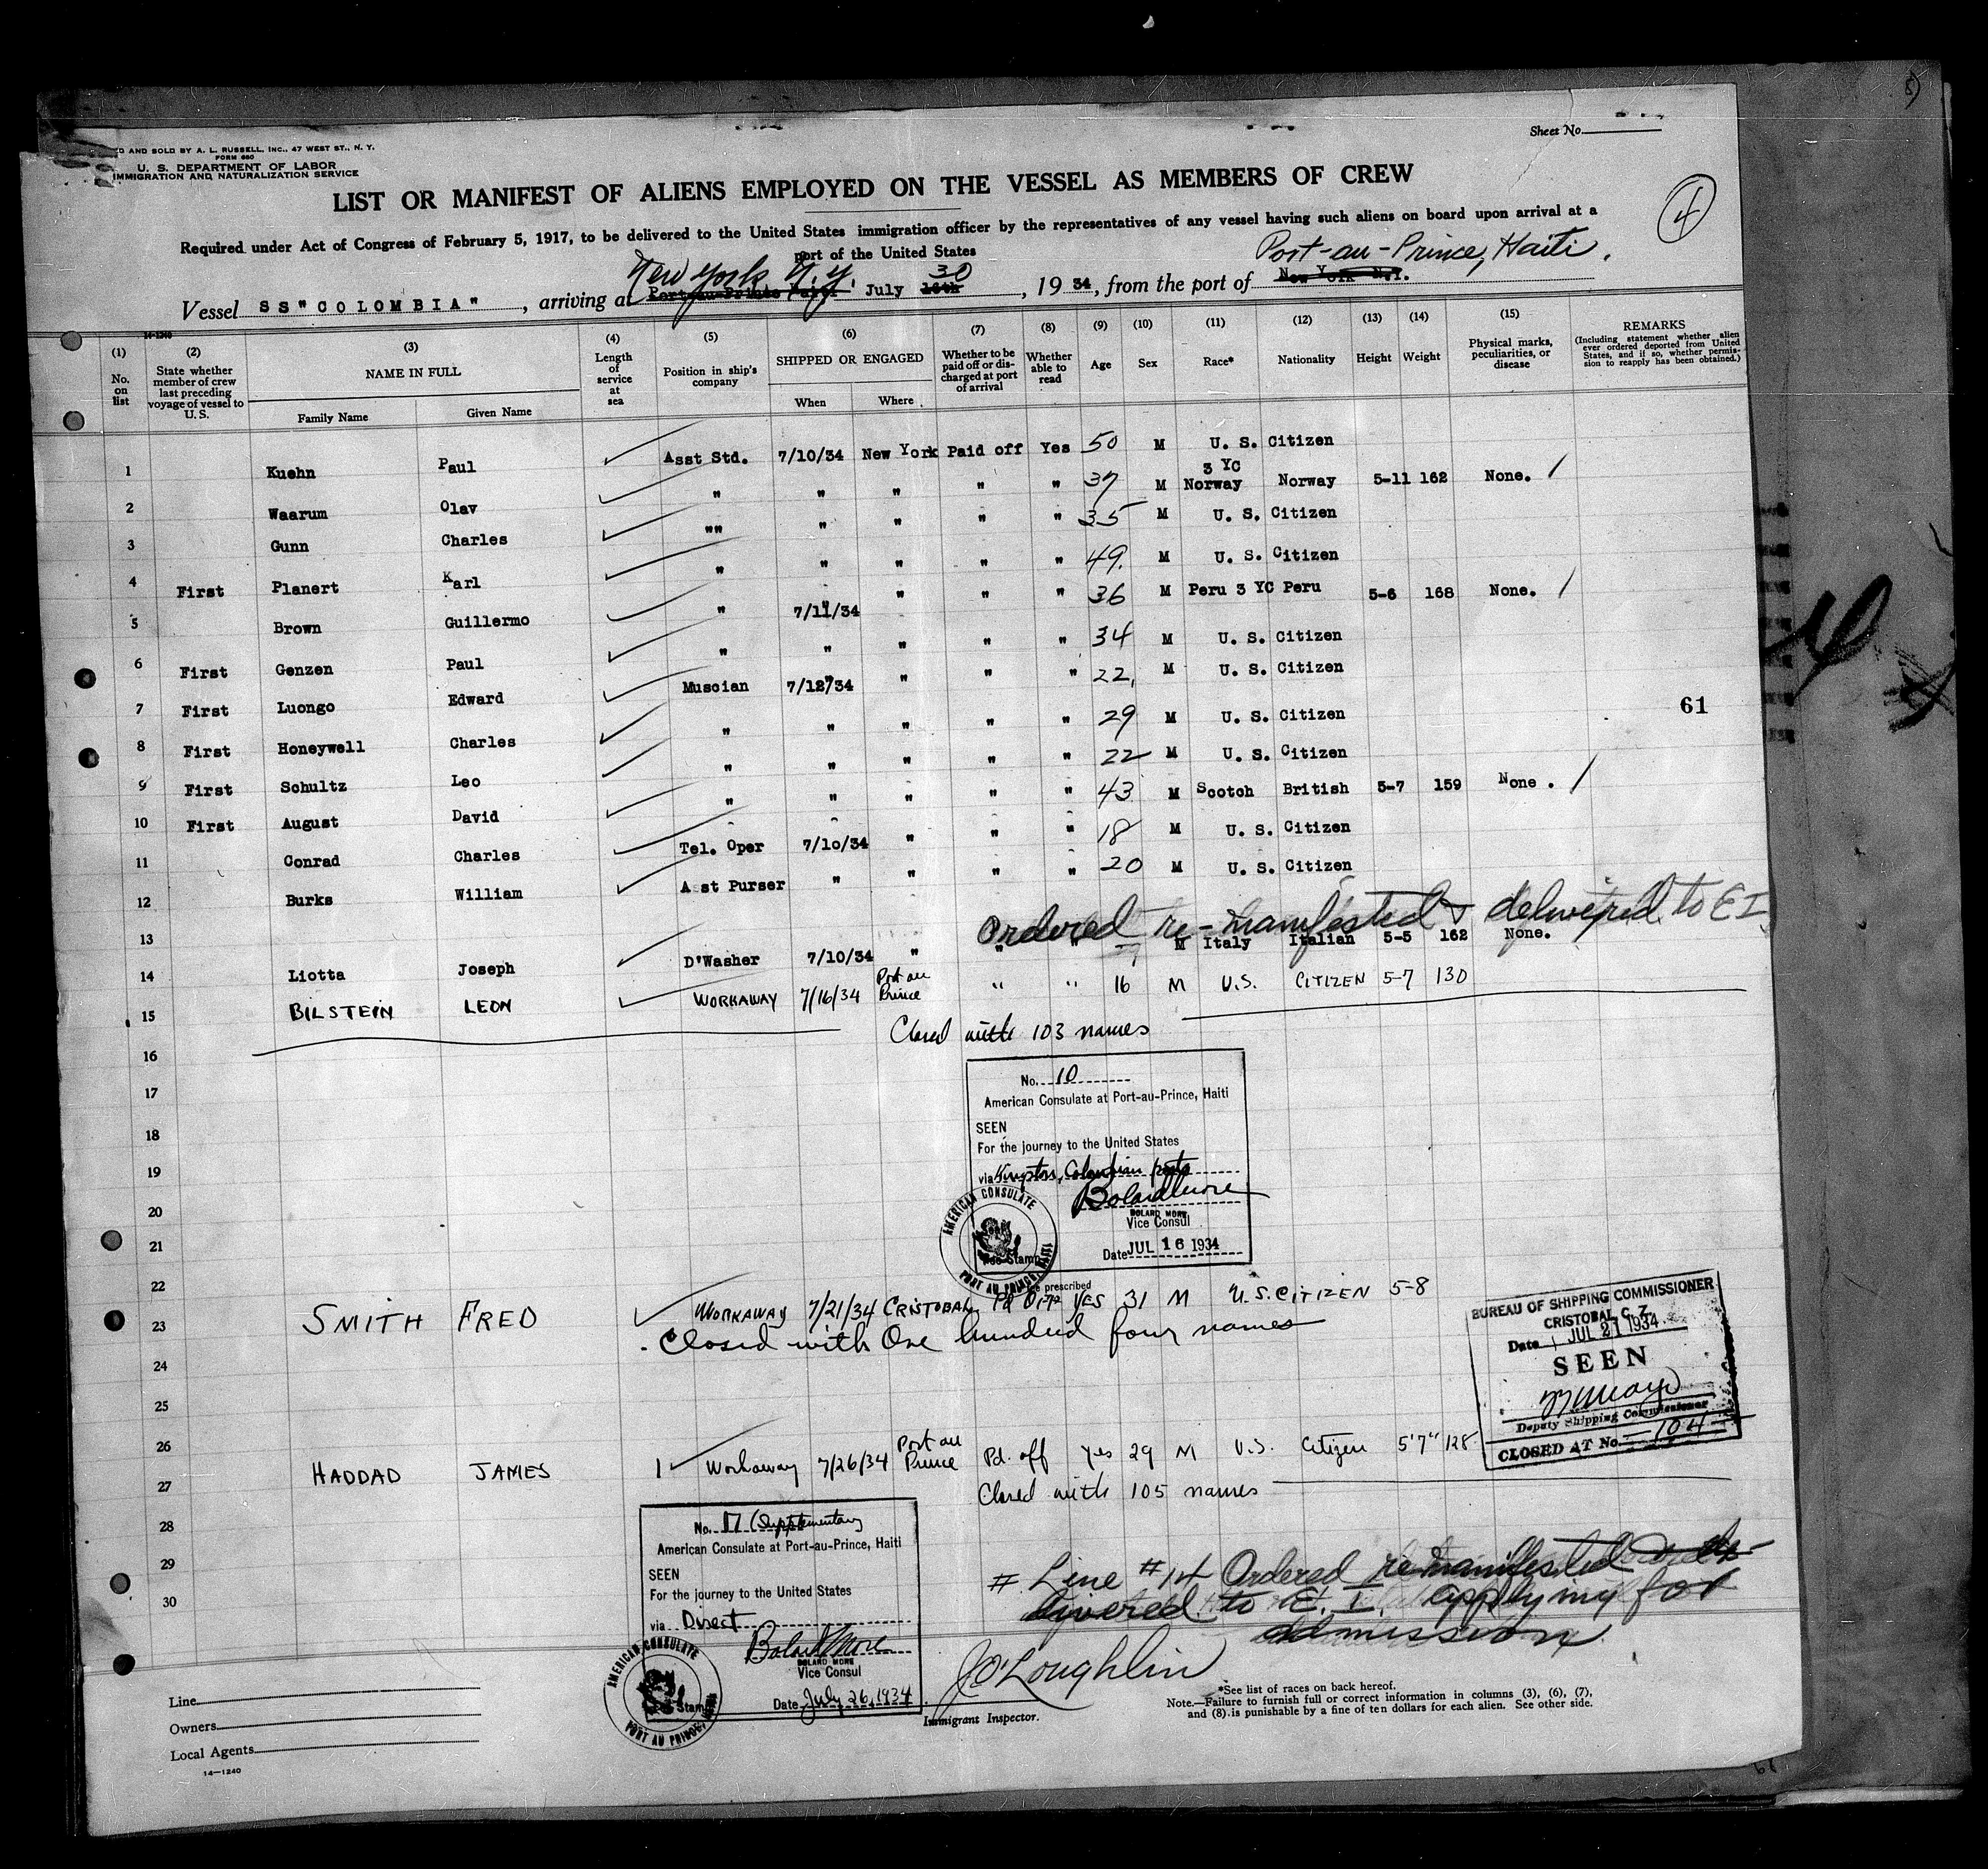 Sheet No.
D AND SOLD BY A. L. RUSSELL, INC., 47 WEST ST., N. Y.
FORM 680
U. S. DEPARTMENT OF LABOR
IMMIGRATION AND NATURALIZATION SERVICE
LIST OR MANIFEST OF ALIENS EMPLOYED ON THE VESSEL AS MEMBERS OF CREW
4
Required under Act of Congress of February 5, 1917, to be delivered to the United States immigration officer by the representatives of any vessel having such aliens on board upon arrival at a
port of the United States
New York N.Y. 30 Port-au-Prince, Haiti.
Vessel SS"COLOMBIA", arriving at Port-au-Prince Haiti July 16th, 19 34, from the port of New York N.Y.
14-1240
(1) No. on list
(2) State whether member of crew last preceding voyage of vessel to U. S.
(3) NAME IN FULL Family Name Given Name
(4) Length of service at sea
(5) Position in ship's company
(6) SHIPPED OR ENGAGED When Where
(7) Whether to be paid off or discharged at port of arrival
(8) Whether able to read
(9) Age
(10) Sex
(11) Race*
(12) Nationality
(13) Height
(14) Weight
(15) Physical marks, peculiarities, or disease
REMARKS (Including statement whether alien ever ordered deported from United States, and if so, whether permission to reapply has been obtained.)
1 Kuehn Paul Asst Std. 7/10/34 New York Paid off Yes 50 M U. S. Citizen
2 Waarum Olav " " " " " 37 M 3 YC Norway Norway 5-11 162 None. /
3 Gunn Charles "" " " " " 35 M U. S. Citizen
4 First Planert Karl " " " " " 49. M U. S. Citizen
5 Brown Guillermo " 7/11/34 " " " 36 M Peru 3 YC Peru 5-6 168 None. /
6 First Genzen Paul " " " " " 34 M U. S. Citizen
7 First Luongo Edward Muscian 7/12/34 " " " 22, M U. S. Citizen
8 First Honeywell Charles " " " " " 29 M U. S. Citizen
9 First Schultz Leo " " " " 22 M U. S. Citizen
10 First August David " " " " " 43 M Scotch British 5-7 159 None . /
11 Conrad Charles Tel. Oper 7/10/34 " " " 18 M U. S. Citizen
12 Burks William A st Purser " " " " 20 M U. S. Citizen
13 Ordered re-manifested & delivered to E I
14 Liotta Joseph D'Washer 7/10/34 " " " M Italy Italian 5-5 162 None.
15 BILSTEIN LEON WORKAWAY 7/16/34 Port au Prince " " 16 M U.S. CITIZEN 5-7 130
61
Closed with 103 names
16
17
18
19
20
21
22
No. 10
American Consulate at Port-au-Prince, Haiti
SEEN
For the journey to the United States
via Kingston, Colombian ports
Bolard More
BOLARD MORE
Vice Consul
Date JUL 16 1934
AMERICAN CONSULATE
PORT AU PRINCE, HAITI
Fee Stamp
prescribed
23 SMITH FRED WORKAWAY 7/21/34 CRISTOBAL Pd Off YES 31 M U.S. CITIZEN 5-8
Closed with One hundred four names
BUREAU OF SHIPPING COMMISSIONER
CRISTOBAL C. Z.
Date JUL 21 1934
SEEN
Deputy Shipping Commissioner
CLOSED AT No. 104
24
25
26
27 HADDAD JAMES 1 Workaway 7/26/34 Port au Prince Pd. off yes 29 M U.S. Citizen 5'7" 128
Closed with 105 names
28
29
30
No. 17 (Supplementary
American Consulate at Port-au-Prince, Haiti
SEEN
For the journey to the United States
via Direct
Bolard More
BOLARD MORE
Vice Consul
Date July 26, 1934
AMERICAN CONSULATE
PORT AU PRINCE, HAITI
Stamp
# Line #14 Ordered re-manifested and de-
livered to E. I. applying for
admission.
J O'Loughlin
Immigrant Inspector.
Line
Owners
Local Agents
14—1240
*See list of races on back hereof.
Note.—Failure to furnish full or correct information in columns (3), (6), (7),
and (8) is punishable by a fine of ten dollars for each alien. See other side.